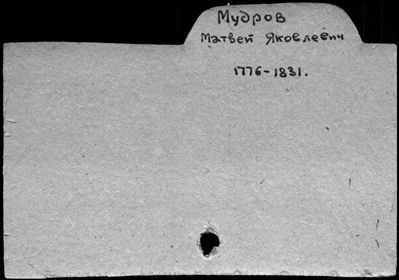 Мудров
Матвей Яковлевич
1776-1831.